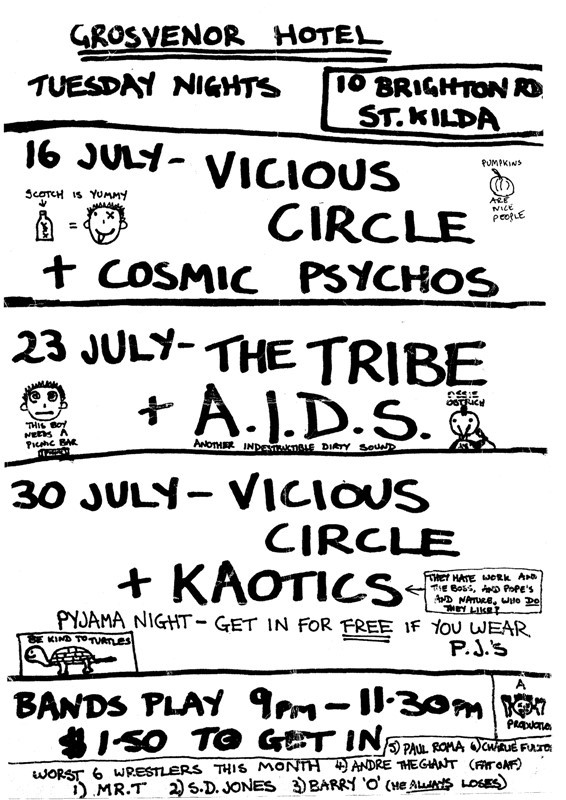 GROSVENOR HOTEL
TUESDAY NIGHTS
10 BRIGHTON RD
ST. KILDA
16 JULY - VICIOUS
CIRCLE
SCOTCH IS YUMMY
=
PUMPKINS
ARE
NICE
PEOPLE
+ COSMIC PSYCHOS
23 JULY - THE TRIBE
+ A.I.D.S.
ANOTHER INDESTRUCTIBLE DIRTY SOUND
THIS BOY
NEEDS A
PICNIC BAR
OSTRICH
30 JULY - VICIOUS
CIRCLE
+ KAOTICS
THEY HATE WORK AND
THE BOSS, AND POPE'S
AND NATURE. WHO DO
THEY LIKE?
PYJAMA NIGHT - GET IN FOR FREE IF YOU WEAR
P.J.'S
BE KIND TO TURTLES
BANDS PLAY 9PM - 11.30PM
$1.50 TO GET IN
A
PRODUCTIO
5) PAUL ROMA 6) CHARLIE FULTO
WORST 6 WRESTLERS THIS MONTH 4) ANDRE THE GIANT (FAT OAF)
1) MR.T 2) S.D. JONES 3) BARRY 'O' (HE ALWAYS LOSES)